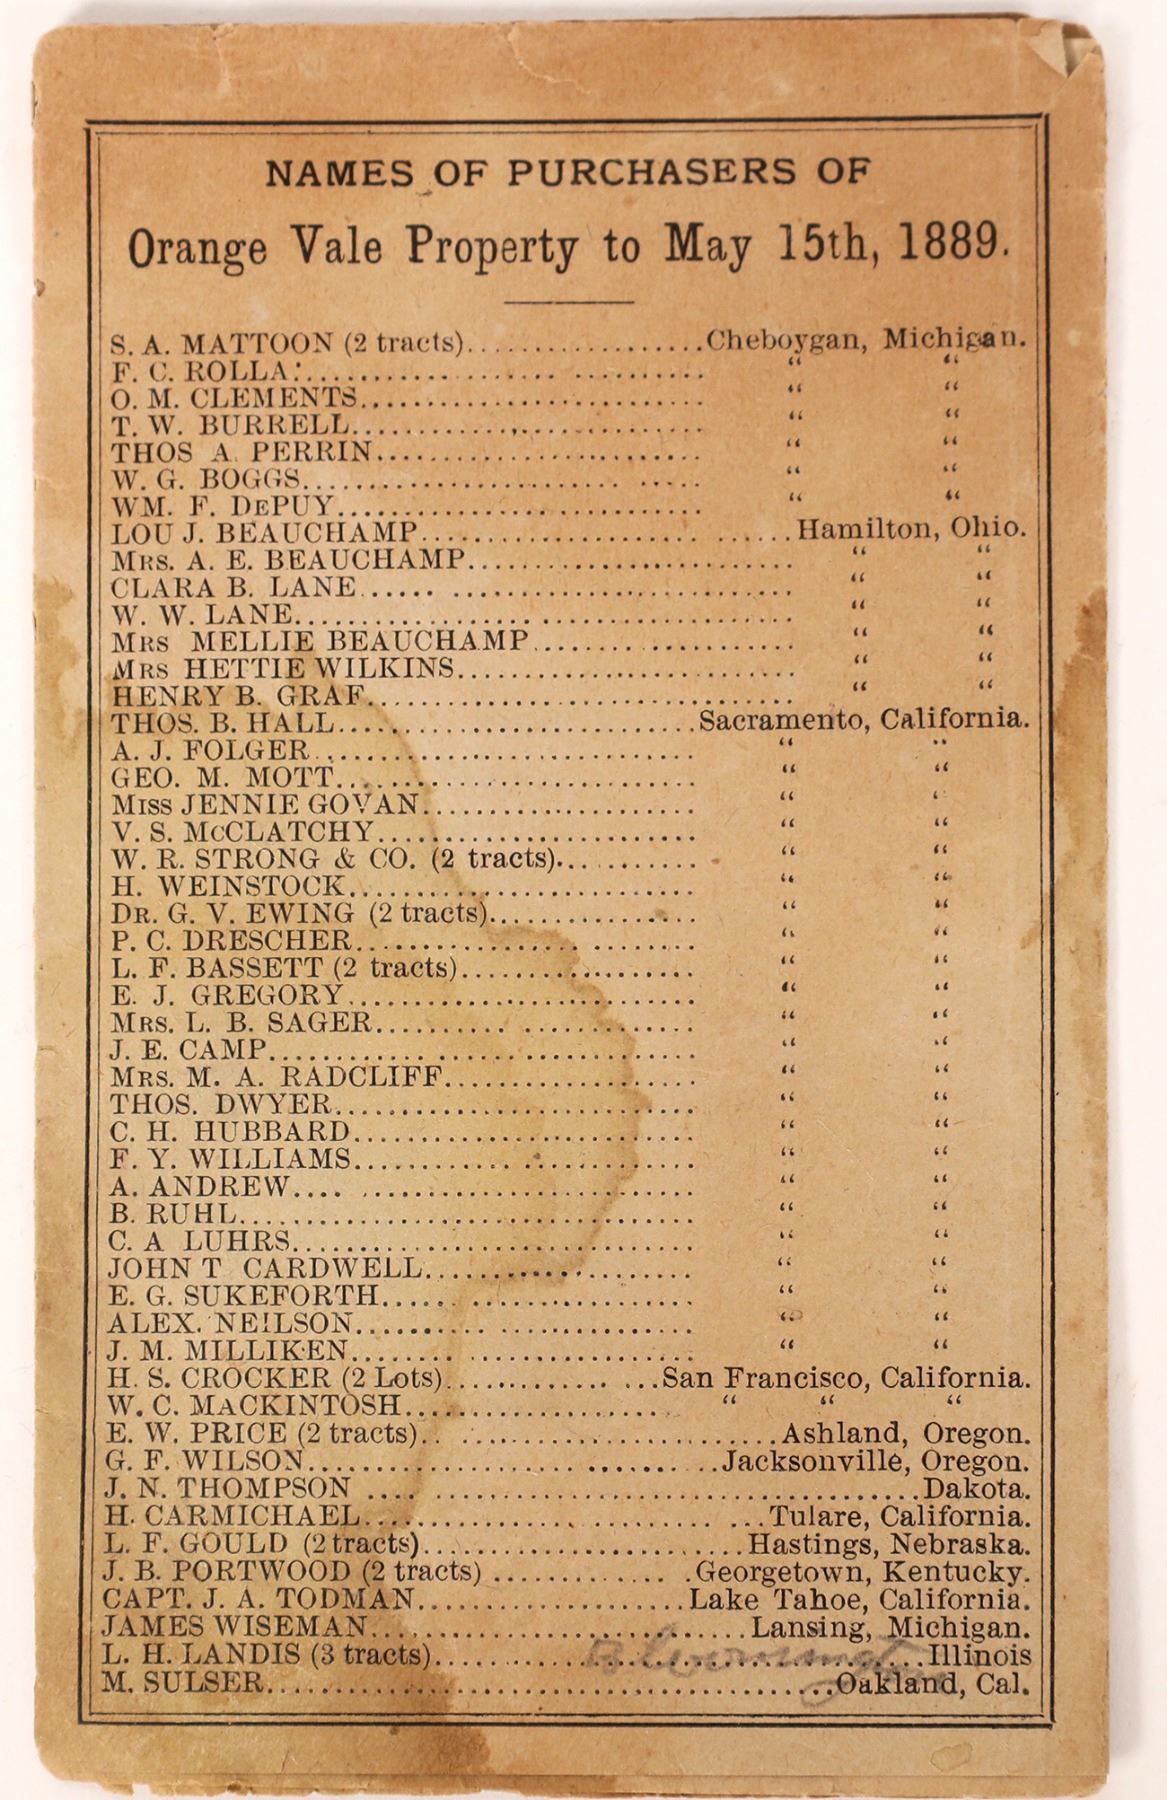 NAMES OF PURCHASERS OF
Orange Vale Property to May 15th, 1889.
S. A. MATTOON (2 tracts)..................Cheboygan, Michigan.
F. C. ROLLA:.............................. “ “
O. M. CLEMENTS.......................... “ “
T. W. BURRELL.......................... “ “
THOS A. PERRIN........................ “ “
W. G. BOGGS............................. “ “
WM. F. DEPUY........................... “ “
LOU J. BEAUCHAMP............................Hamilton, Ohio.
MRS. A. E. BEAUCHAMP........................ “ “
CLARA B. LANE............................... “ “
W. W. LANE.................................. “ “
MRS MELLIE BEAUCHAMP.................... “ “
MRS HETTIE WILKINS......................... “ “
HENRY B. GRAF................................ “ “
THOS. B. HALL...........................Sacramento, California.
A. J. FOLGER............................ “ “
GEO. M. MOTT.......................... “ “
MISS JENNIE GOVAN.................... “ “
V. S. MCCLATCHY........................ “ “
W. R. STRONG & CO. (2 tracts).......... “ “
H. WEINSTOCK.......................... “ “
DR. G. V. EWING (2 tracts)............... “ “
P. C. DRESCHER......................... “ “
L. F. BASSETT (2 tracts).................. “ “
E. J. GREGORY.......................... “ “
MRS. L. B. SAGER........................ “ “
J. E. CAMP............................... “ “
MRS. M. A. RADCLIFF................... “ “
THOS. DWYER........................... “ “
C. H. HUBBARD......................... “ “
F. Y. WILLIAMS......................... “ “
A. ANDREW............................ “ “
B. RUHL.................................. “ “
C. A LUHRS.............................. “ “
JOHN T CARDWELL.................... “ “
E. G. SUKEFORTH....................... “ “
ALEX. NEILSON......................... “ “
J. M. MILLIKEN......................... “ “
H. S. CROCKER (2 Lots)...............San Francisco, California.
W. C. MACKINTOSH.................... “ “ “
E. W. PRICE (2 tracts)..........................Ashland, Oregon.
G. F. WILSON..............................Jacksonville, Oregon.
J. N. THOMPSON ........................................Dakota.
H. CARMICHAEL..............................Tulare, California.
L. F. GOULD (2 tracts).......................Hastings, Nebraska.
J. B. PORTWOOD (2 tracts) ..............Georgetown, Kentucky.
CAPT. J. A. TODMAN....................Lake Tahoe, California.
JAMES WISEMAN...........................Lansing, Michigan.
L. H. LANDIS (3 tracts)......Bloomington......Illinois
M. SULSER.......................................Oakland, Cal.